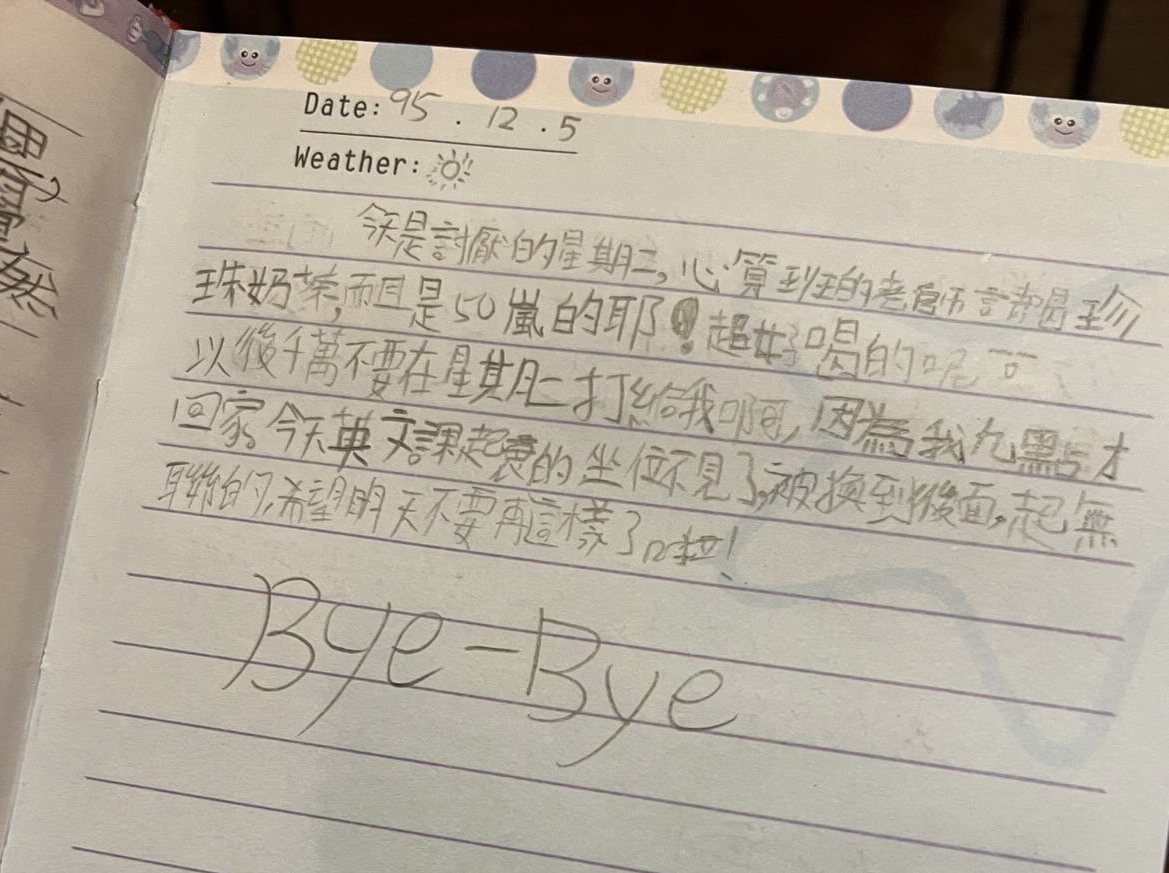 Date: 95.12.5
Weather:
今天是討厭的星期二,心算班的老師請喝珍
珠奶茶,而且是50嵐的耶!超好喝的呢
以後千萬不要在星期二打給我啊,因為我九點才
回家。今天英文課起衰的坐位不見了,被換到後面,起無
聊的,希望明天不要再這樣了啦!
Bye-Bye